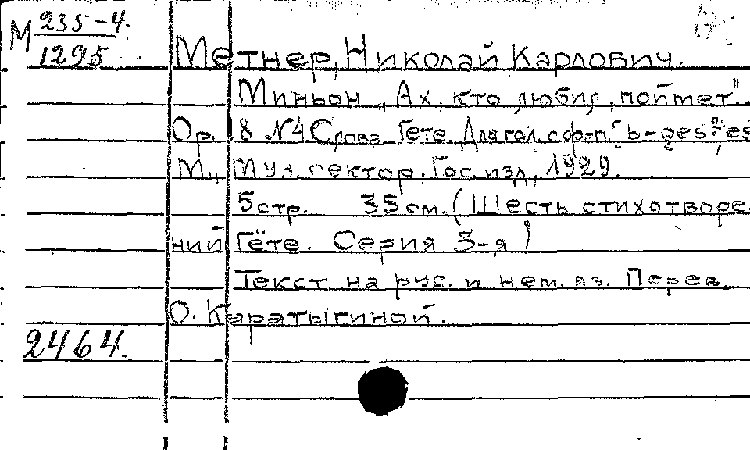 М 235-4.
1295
Метнер, Николай Карлович.
Миньон „Ах, кто любил, поймет".
Op. 18 №4 Слова Гете. Для гол. с ф-п.
М., Муз. сектор. Гос. изд., 1929.
5 стр. 35 см. (Шесть стихотворе-
ний Гёте. Серия 3-я)
Текст на рус. и нем. яз. Перев.
О. Каратыгиной.
2464.